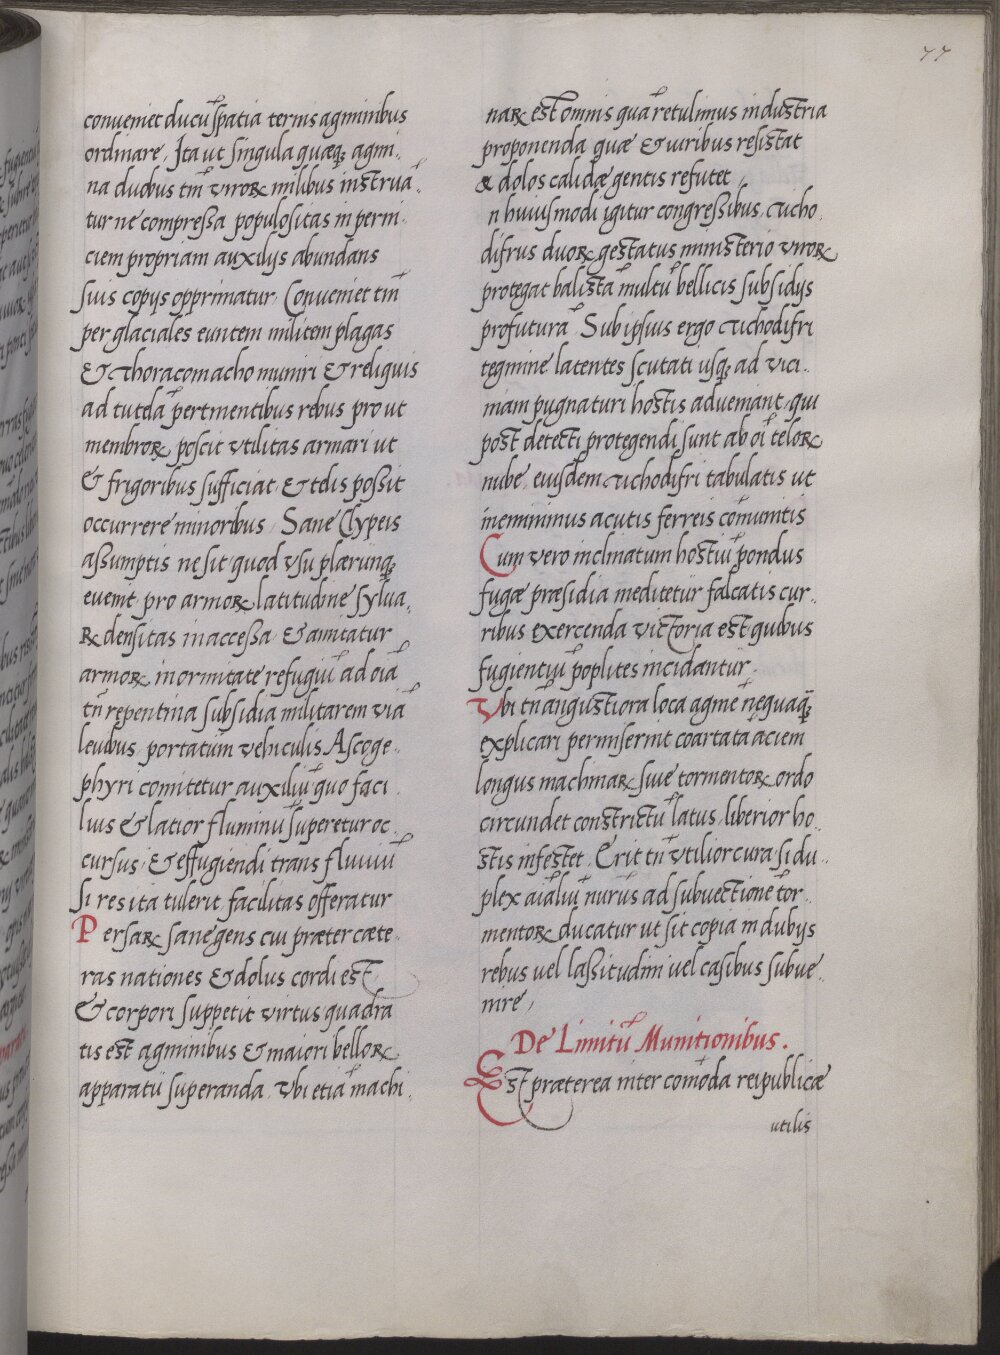 77
conueniet ducū spatia ternis agminibus
ordinare, Ita ut singula quæq; agmi.
na duobus tm̄ viroꝝ milibus instruā.
tur ne compressa populositas in perni.
ciem propriam auxilijs abundans
suis copijs opprimatur. Conueniet tm̄
per glaciales euntem militem plagas
& thoracomacho muniri & reliquis
ad tutelā pertinentibus rebus pro ut
membroꝝ poscit vtilitas armari ut
& frigoribus sufficiat, & telis possit
occurrere minoribus, Sane Clypeis
assumptis ne sit quod vsu plærunq;
euenit pro armoꝝ latitudine sylua,
ꝝ densitas inaccessa, & amitatur
armoꝝ inormitate refugiū ad oīa
tn̄ repentina subsidia militarem viā
leuibus portatum vehiculis Ascoge.
phyri comitetur auxiliū quo faci.
lius & latior fluminū superetur oc.
cursus, & effugiendi trans fluuiū
si res ita tulerit facilitas offeratur
Persaꝝ sane gens cui præter cæte.
ras nationes & dolus cordi est
& corpori suppetit virtus quadra
tis est agminibus & maiori belloꝝ
apparatū superanda, Vbi etiā machi.
naꝝ est omnis quā retulimus industria
proponenda quæ & uiribus resistat
& dolos calidæ gentis refutet,
n huiusmodi igitur congressibus, ticho.
difrus duoꝝ gestatus ministerio viroꝝ
protegat balistā multū bellicis subsidijs
profuturā Sub ipsius ergo tichodifri
tegmine latentes scutati usq; ad vici.
niam pugnaturi hostis adueniant, qui
post detecti protegendi sunt ab oī teloꝝ
nube, eiusdem tichodifri tabulatis ut
ineminimus acutis ferreis cōmunitis
Cum vero inclinatum hostiū pondus
fugæ præsidia meditetur falcatis cur.
ribus exercenda victoria est quibus
fugientiū poplites incidantur.
Vbi tn̄ angustiora loca agmē neq̄uaq;
explicari permiserint coartata aciem
longus machinaꝝ siue tormentoꝝ ordo
circundet constrictū latus, liberior ho.
stis infestet, Erit tn̄ vtilior cura si du.
plex aīaliū nurus ad subuectionē tor.
mentoꝝ ducatur ut sit copia in dubijs
rebus uel lassitudini uel casibus subue.
nire,
De Limitū Munitionibus.
Est præterea inter comōda reipublicæ
utilis